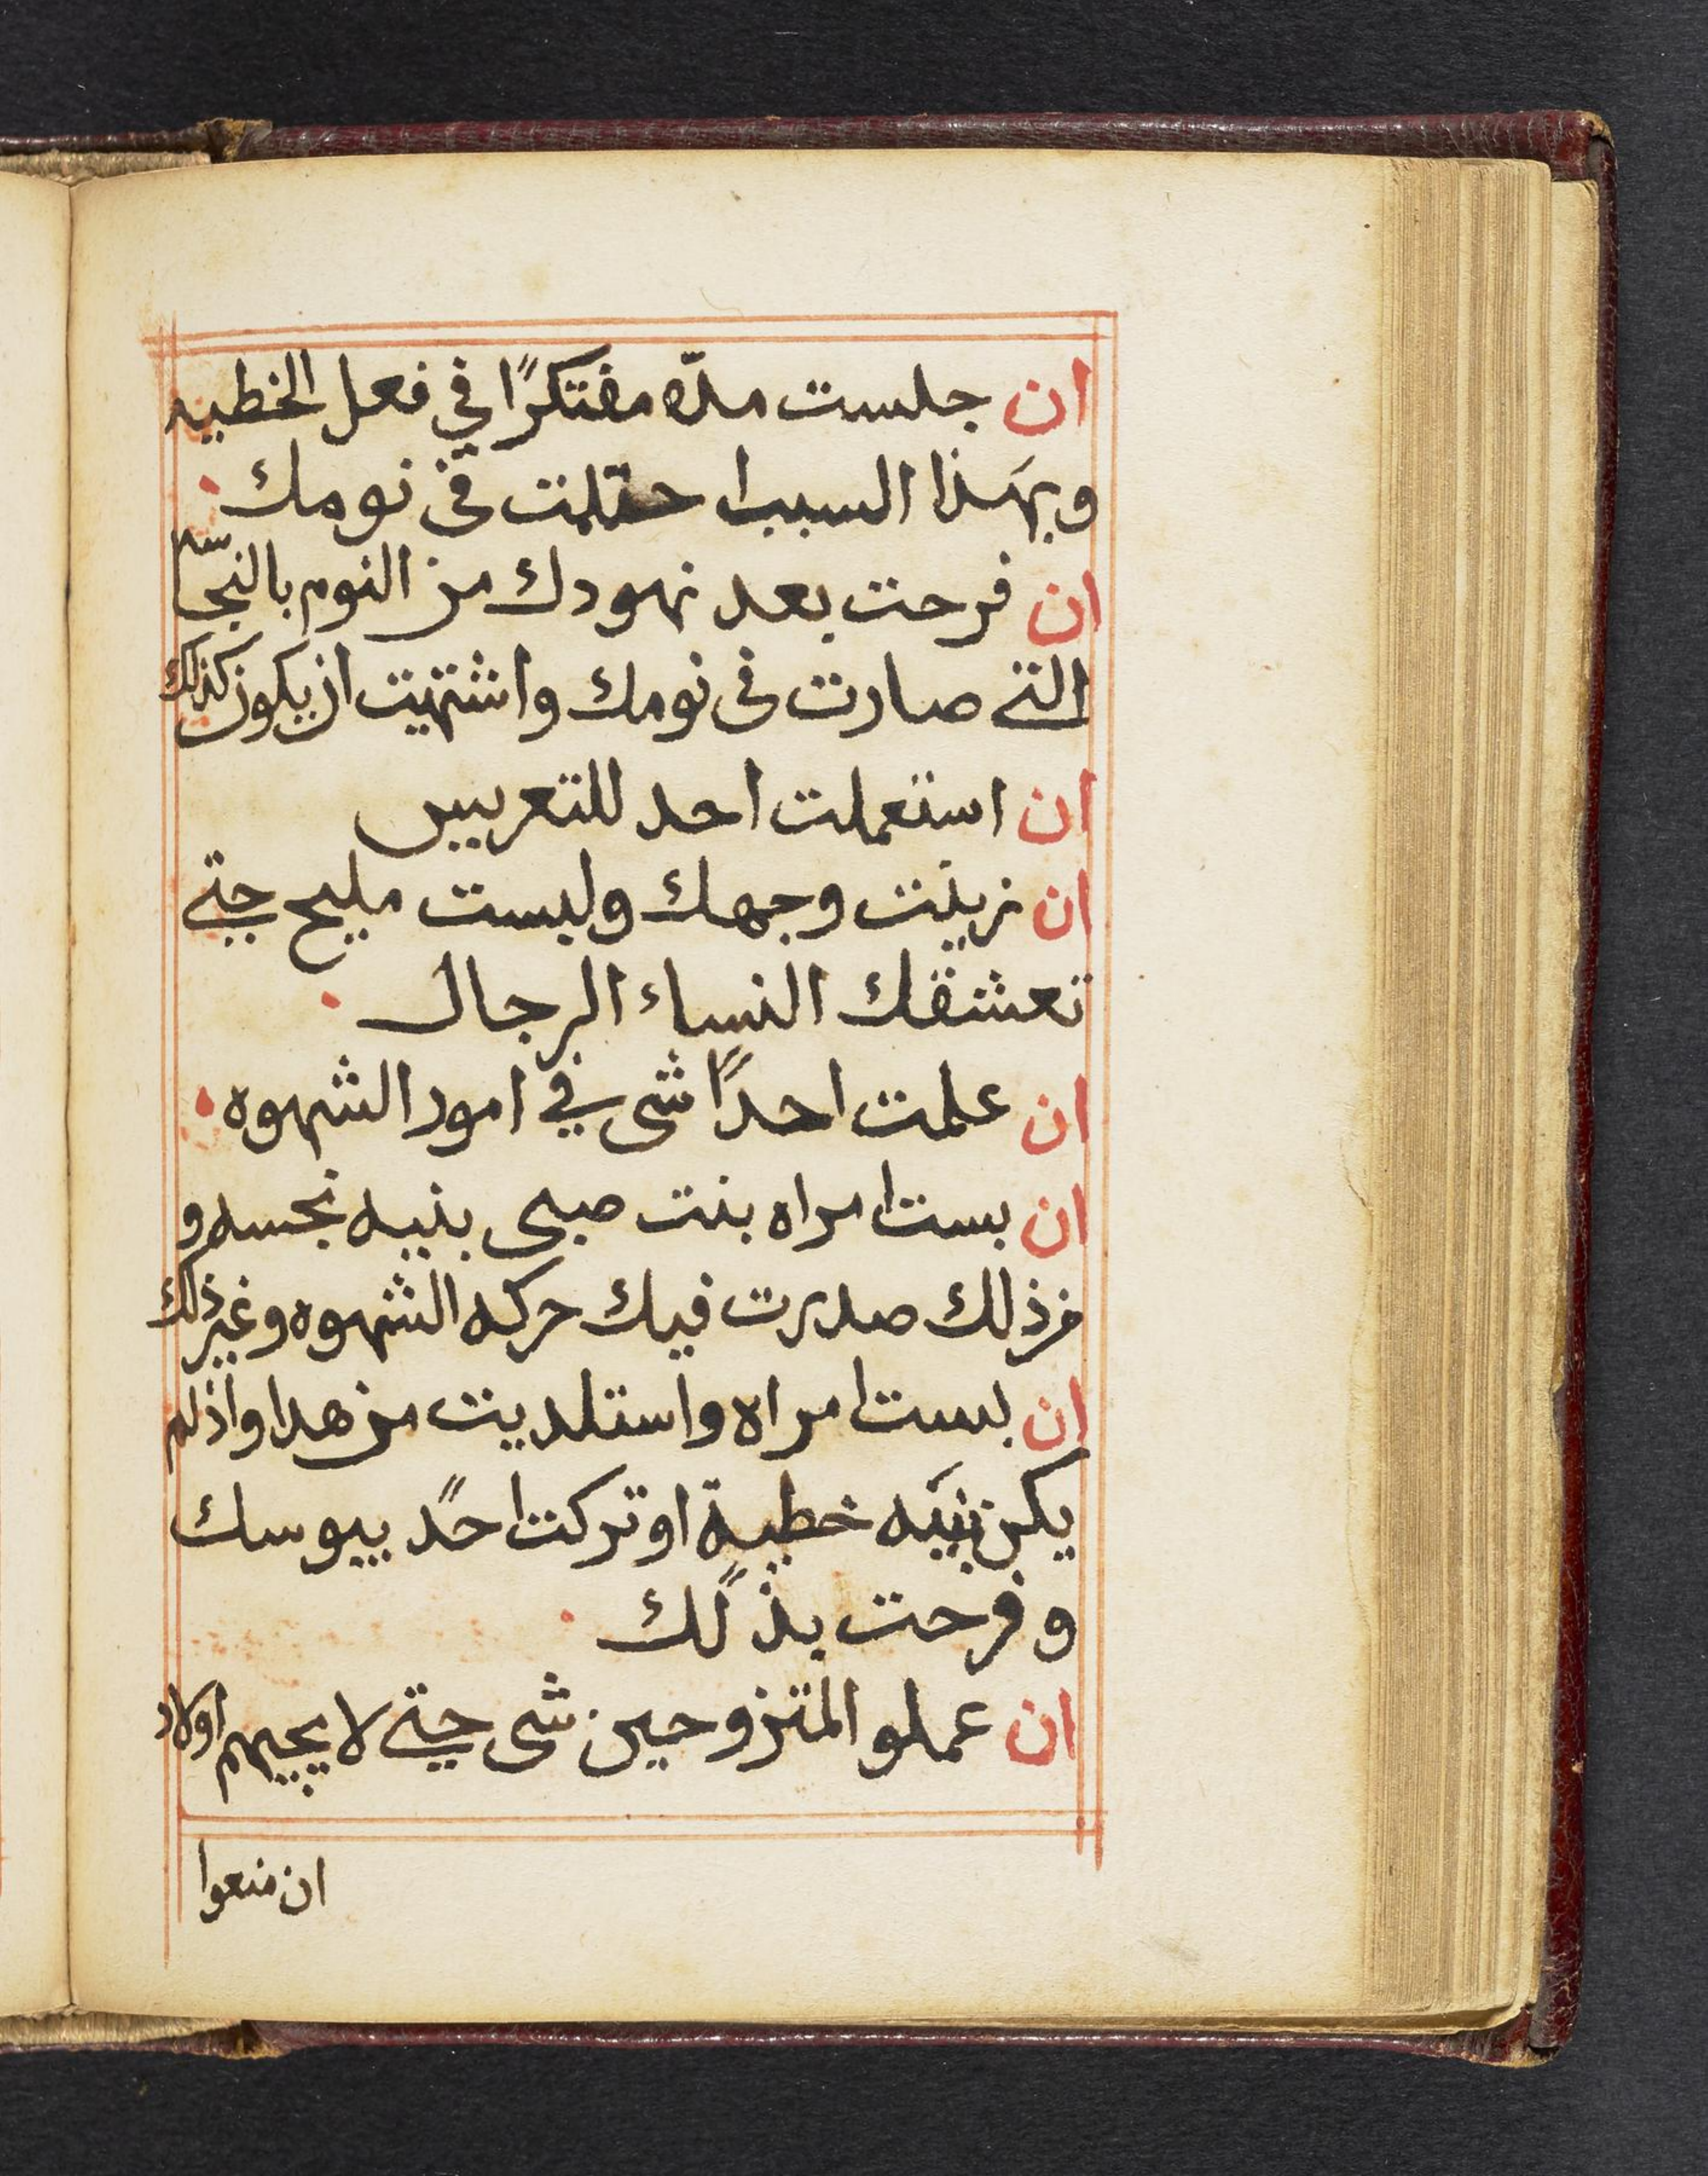 ان جلست مدّه مفتكرًا في فعل الخطيه
وبهَذا السبب احتلمت في نومك
ان فرحت بعد نهودك من النوم بالنجّاسه
التي صارت في نومك واشتهيت ان يكون كذلك
ان استعملت احد للتعريس
ان زينت وجهك ولبست مليح حتي
تعشقك النساء الرجال
ان علمت احدًا شي في امور الشهوه
ان بست امراه بنت صبي بنيه نجسه و
من ذلك صدرت فيك حركه الشهوه وغير ذلك
ان بست امراه واستلديت من هدا واذ لم
يكن بنيَه خطية او تركت احدً يبوسك
وفرحت بذلك
ان عملو المتزوجين شي حتي لا يجيهم اولاد
ان منعوا